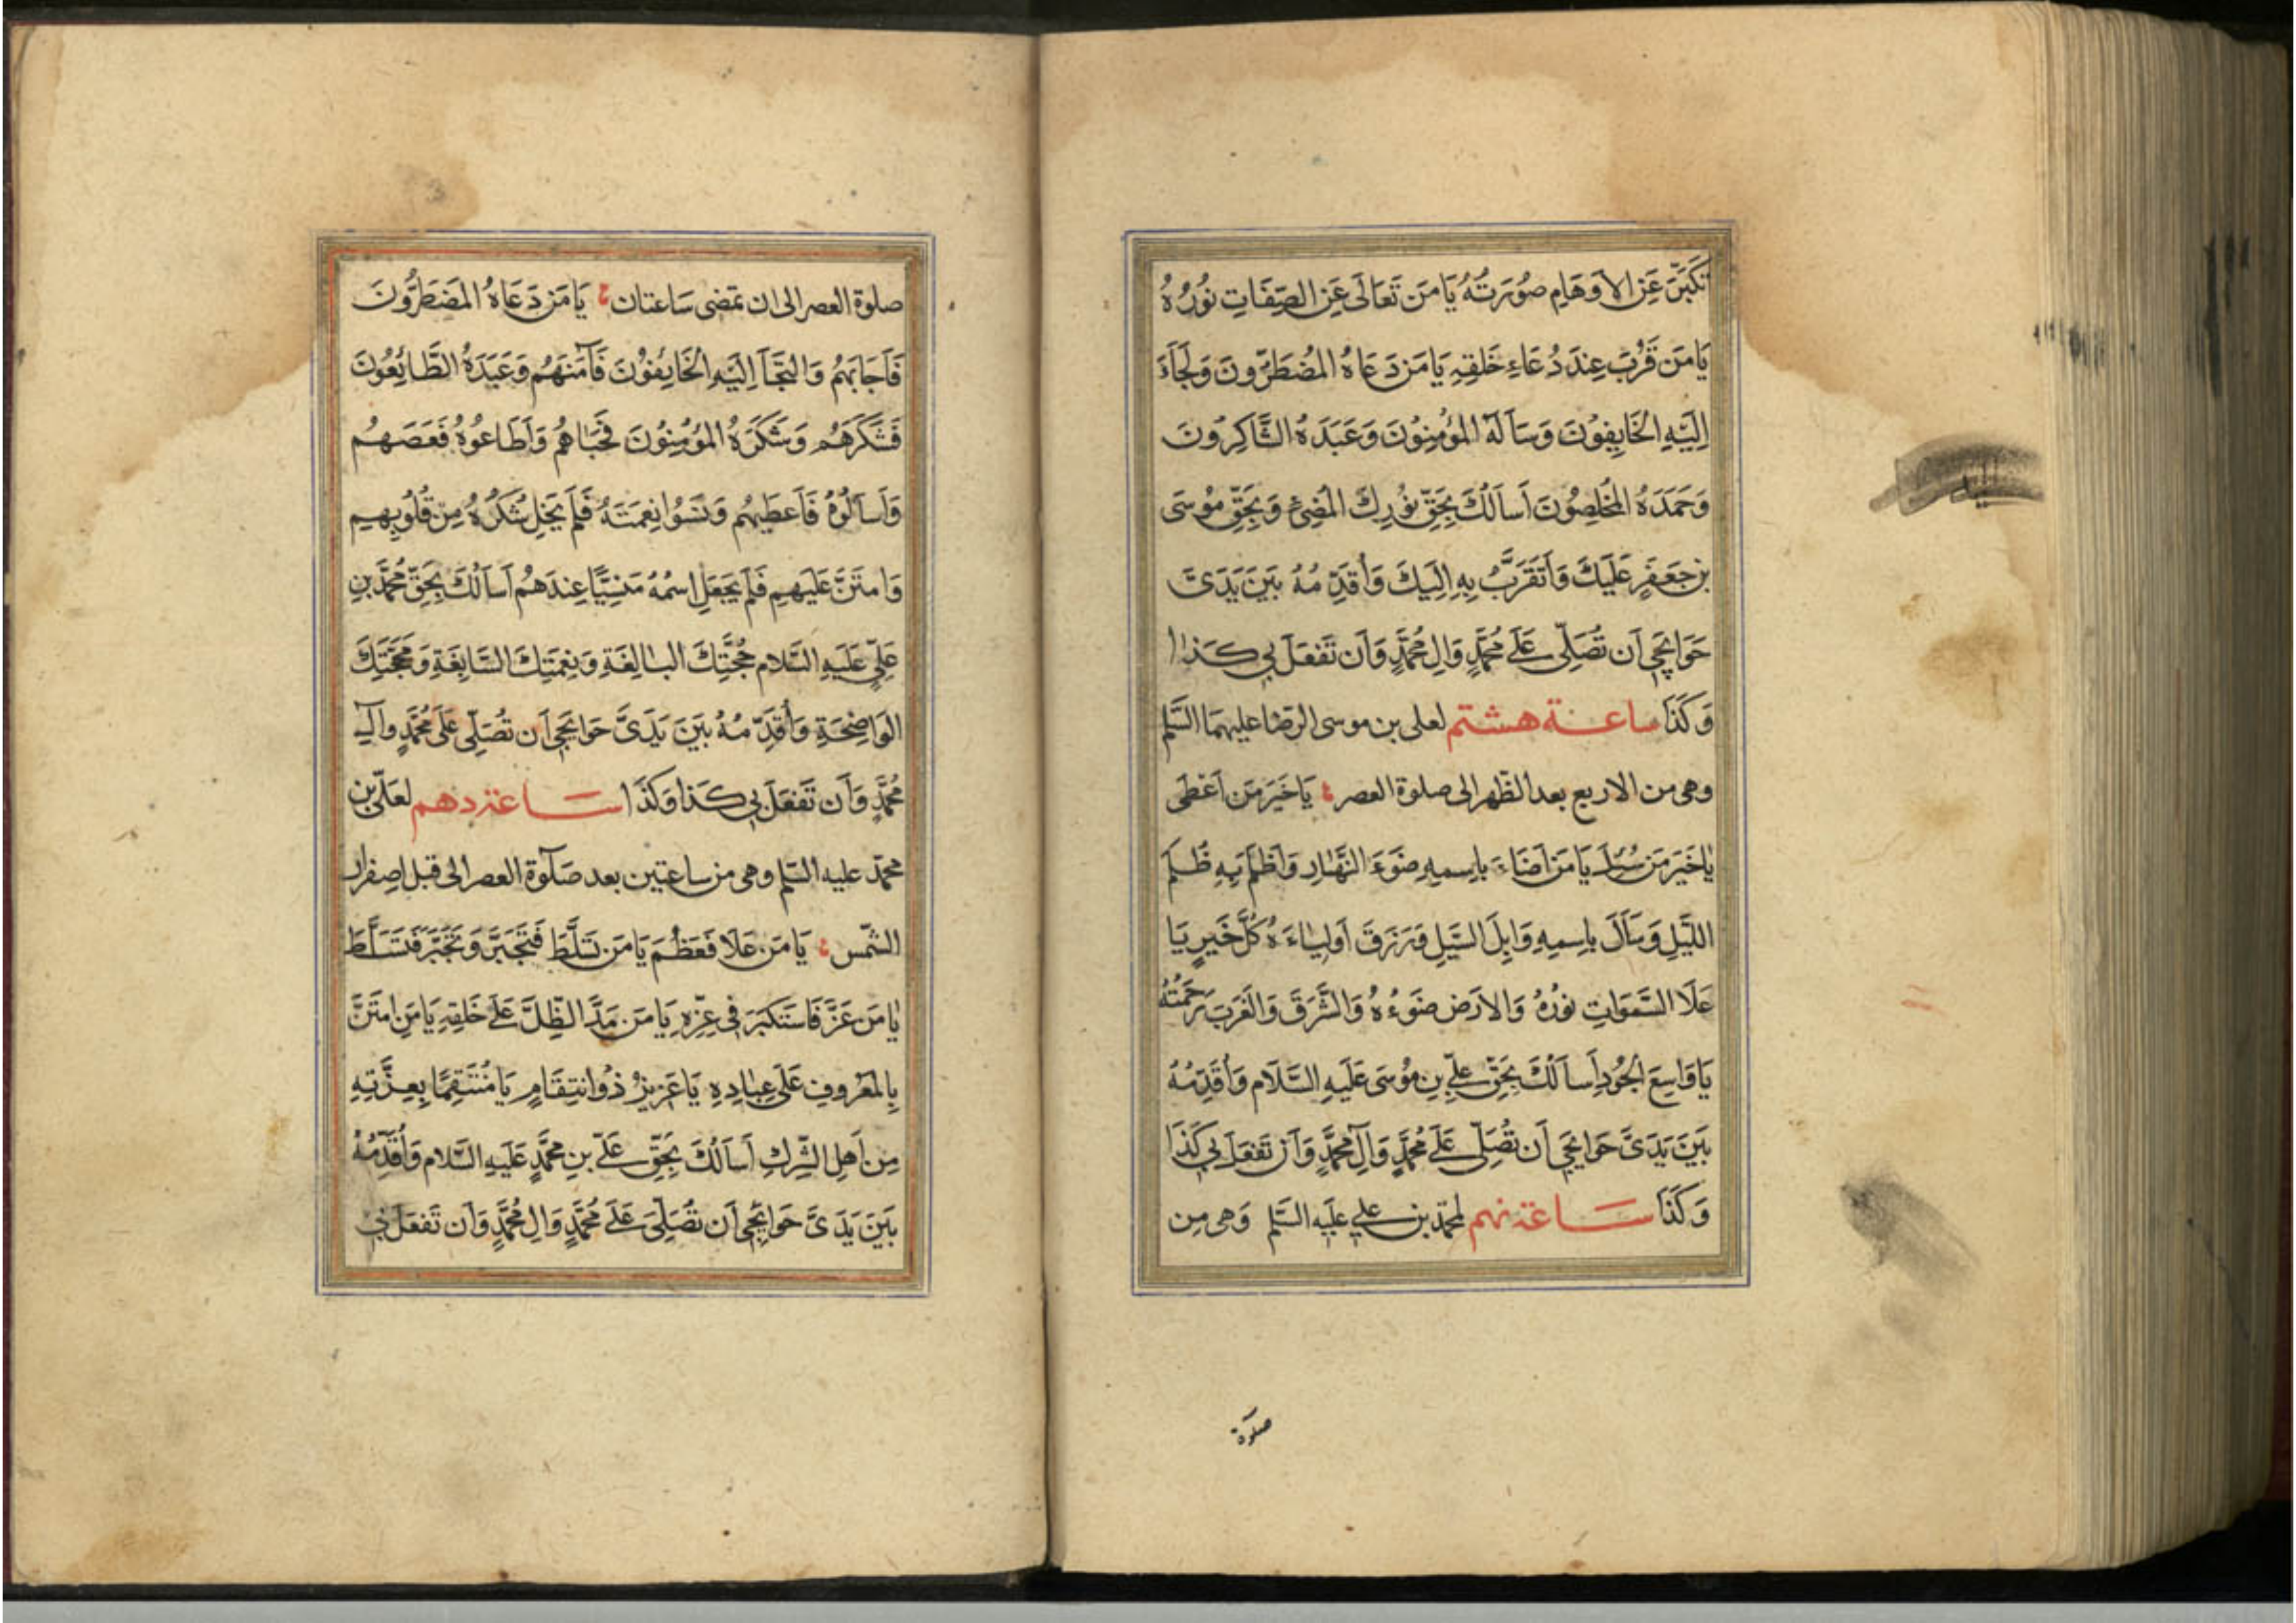 تَكَبَّرَ عَنِ الاَوهَامِ صُورَتُهُ يَا مَن تَعَالَى عَنِ الصِّفَاتِ نُورُهُ
يَا مَن قَرُبَ عِندَ دُعَاءِ خَلقِهِ يَا مَن دَعَاهُ المُضطَرُّونَ وَلَجَأَ
اِلَيهِ الخَايِفُونَ وَسَأَلَهُ المُؤمِنُونَ وَعَبَدَهُ الشَّاكِرُونَ
وَحَمَدَهُ المُخلِصُونَ اَسأَلُكَ بِحَقِّ نُورِكَ المُضِئِ وَبِحَقِّ مُوسَى
بنِ جَعفَرٍ عَلَيكَ وَاَتَقَرَّبُ بِهِ اِلَيكَ وَاُقَدِّمُهُ بَينَ يَدَىَّ
حَوَايِجِي اَن تُصَلِّىَ عَلَى مُحَمَّدٍ وَالِ مُحَمَّدٍ وَاَن تَفعَلَ بِي كَذَا
وَكَذَا ساعة هشتم لعلى بن موسى الرضا عليهما السَّلم
وهى من الاربع بعد الظّهر الى صلوة العصر يَا خَيرَ مَن اَعْطَى
يَا خَيرَ مَن سُئِلَ يَا مَن اَضَاءَ بِاسمِهِ ضَوءَ النَّهَارِ وَاَظلَمَ بِهِ ظُلَمَ
اللَّيلِ وَسَالَ بِاسمِهِ وَابِلَ السَّيلِ وَرَزَقَ اَولِيَاءَهُ كُلَّ خَيرٍ يَا
عَلَا السَّمَوَاتِ نُورُهُ وَالاَرضَ ضَوءُهُ وَالشَّرقَ وَالغَربَ رَحمَتُهُ
يَا وَاسِعَ الجُودِ اَسأَلُكَ بِحَقِّ عَلِيِّ بنِ مُوسَى عَلَيهِ السَّلَام وَاُقَدِّمُهُ
بَينَ يَدَىَّ حَوَايِجِي اَن تُصَلِّىَ عَلَى مُحَمَّدٍ وَآلِ مُحَمَّدٍ وَاَن تَفعَلَ بِي كَذَا
وَكَذَا ساعة نهم لمحمّد بن علي عليه السَّلم وَهى مِن
صلوة
صلوة العصر الى ان تمضى سَاعتان يَا مَن دَعَاهُ المُضطَرُّونَ
فَاَجَابَهُم وَالتَجَأَ اِلَيهِ الخَائِفُونَ فَآمَنَهُم وَعَبَدَهُ الطَّائِعُونَ
فَشَكَرَهُم وَشَكَرَهُ المُؤمِنُونَ فَحَبَاهُم وَاَطَاعُوهُ فَعَصَمَهُم
وَاَسأَلُوهُ فَاَعطَيهُم وَنَسُوا نِعمَتَهُ فَلَم يُخلِ شُكرَهُ مِن قُلُوبِهِم
وَامتَنَّ عَلَيهِم فَلَم يَجعَلِ اسمَهُ مَنسِيًّا عِندَهُم اَسأَلُكَ بِحَقِّ مُحَمَّدِ بنِ
عَلِيٍّ عَلَيهِ السَّلام حُجَّتِكَ البَالِغَةِ وَنِعمَتِكَ السَّابِغَةِ وَمَحَجَّتِكَ
الوَاضِحَةِ وَاُقَدِّمُهُ بَينَ يَدَىَّ حَوَايِجِي اَن تُصَلِّىَ عَلَى مُحَمَّدٍ وَآلِ
مُحَمَّدٍ وَاَن تَفعَلَ بِي كَذَا وَكَذَا ساعة دهم لعَلىّ بن
محمّد عليه السّلم وهى من ساعتين بعد صَلَوة العصر الى قبل اصفرار
الشّمس يَا مَن عَلَا فَعَظُمَ يَا مَن تَسَلَّطَ فَتَجَبَّرَ وَتَجَبَّرَ فَتَسَلَّطَ
يَا مَن عَزَّ فَاستَكبَرَ فِي عِزِّهِ يَا مَن مَدَّ الظِّلَّ عَلَى خَلقِهِ يَا مَنِ امتَنَّ
بِالمَعرُوفِ عَلَى عِبَادِهِ يَا عَزِيزُ ذُو انتِقَامٍ يَا مُنتَقِمًا بِعِزَّتِهِ
مِن اَهلِ الشِّركِ اَسأَلُكَ بِحَقِّ عَلِيِّ بنِ مُحَمَّدٍ عَلَيهِ السَّلام وَاُقَدِّمُهُ
بَينَ يَدَىَّ حَوَائِجِي اَن تُصَلِّىَ عَلَى مُحَمَّدٍ وَالِ مُحَمَّدٍ وَاَن تَفعَلَ بِي